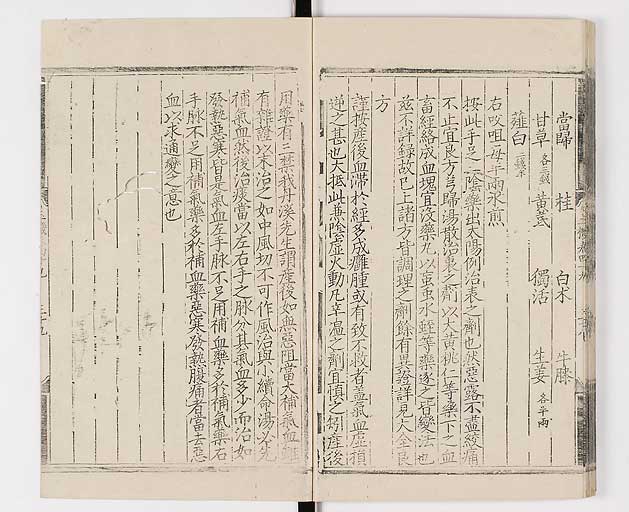 當歸 桂 白朮 牛膝
甘草各三錢 黃芪 獨活 生姜各半兩
薤白二錢半
右㕮咀每半兩水煎
按此手足三陰藥出太陽例治表之劑也然惡露不盡絞痛
不止宜良方芎歸湯散治表之劑以大黃桃仁等藥下之血
畜經絡成血塊宜没藥丸以蝱虫水蛭等藥逐之皆變法也
茲不詳録故已上諸方皆調理之劑餘有異證詳見大全良
方
謹按産後血滯於經多成癰腫或有致不救者蓋氣血虛損
逆之甚也大抵此兼陰虛火動凡辛溫之劑宜慎之 産後
用藥有三禁我丹溪先生謂産後如無惡阻當大補氣血雖
有雜證以末治之如中風切不可作風治與小續命湯必先
補氣血然後治痰當以左右手之脉分其氣血多少而治如
發熱惡寒皆是氣血左手脉不足用補血藥多於補氣藥右
手脉不足用補氣藥多於補血藥惡寒發熱腹痛者當去惡
血以求通變之意也